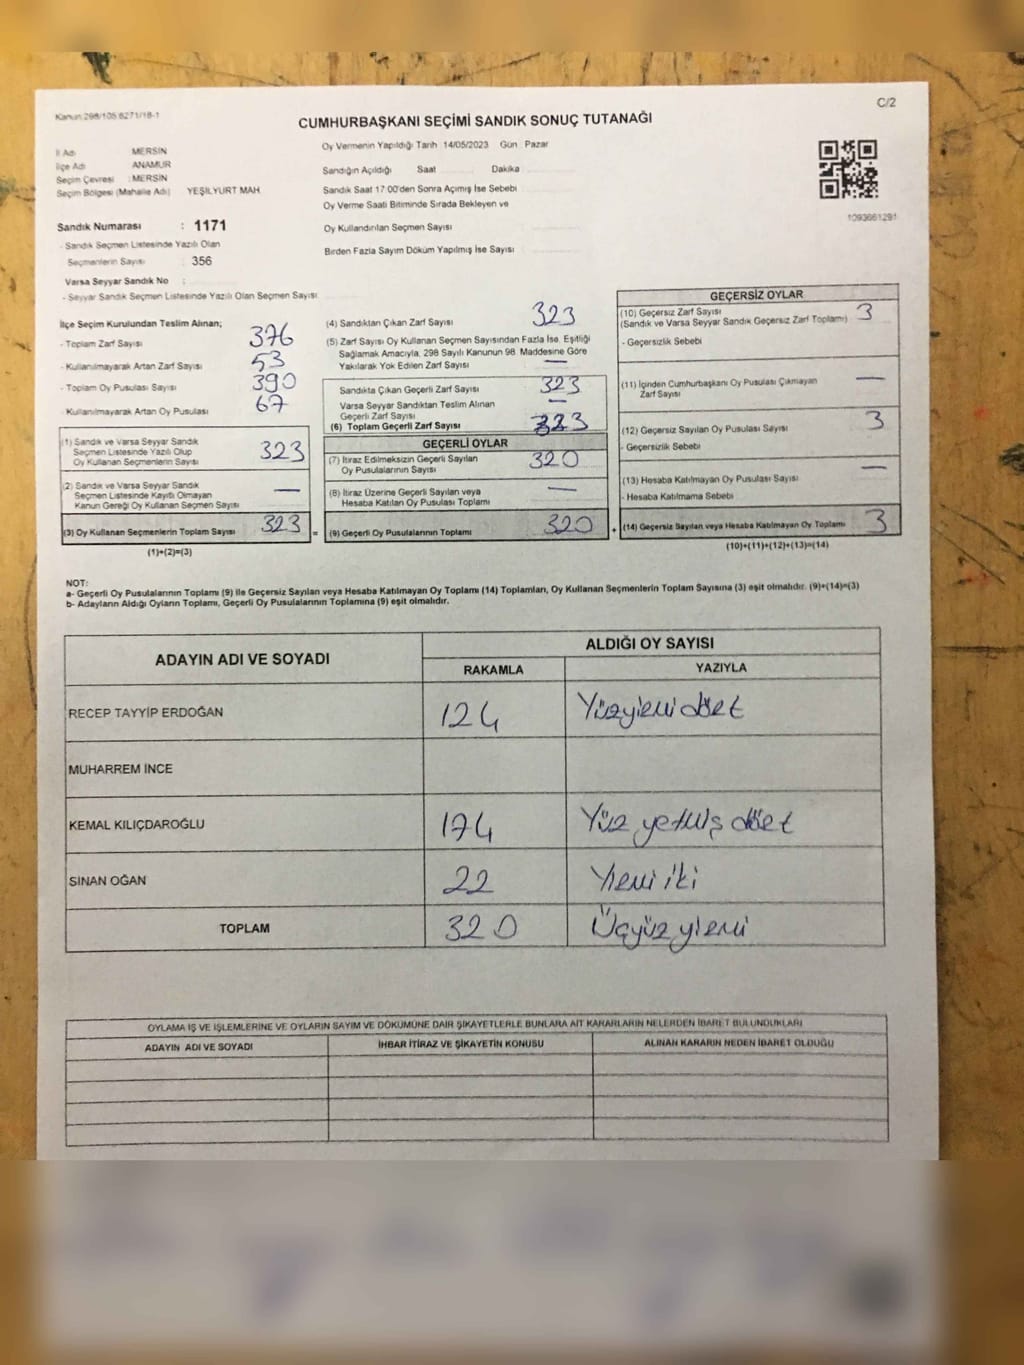 C/2
Kanun:298/105 6271/18-1
CUMHURBAŞKANI SEÇİMİ SANDIK SONUÇ TUTANAĞI
İl Adı MERSİN
İlçe Adı ANAMUR
Seçim Çevresi : MERSİN
Seçim Bölgesi (Mahalle Adı) YEŞİLYURT MAH.
Oy Vermenin Yapıldığı Tarih 14/05/2023 Gün Pazar
Sandığın Açıldığı Saat Dakika
Sandık Saat 17:00'den Sonra Açımış İse Sebebi
Oy Verme Saati Bitiminde Sırada Bekleyen ve
Oy Kullandırılan Seçmen Sayısı
Birden Fazla Sayım Döküm Yapılmış İse Sayısı
1093661291
Sandık Numarası : 1171
- Sandık Seçmen Listesinde Yazılı Olan
Seçmenlerin Sayısı : 356
Varsa Seyyar Sandık No :
- Seyyar Sandık Seçmen Listesinde Yazılı Olan Seçmen Sayısı
İlçe Seçim Kurulundan Teslim Alınan;
- Toplam Zarf Sayısı 376
- Kullanılmayarak Artan Zarf Sayısı 53
- Toplam Oy Pusulası Sayısı 390
- Kullanılmayarak Artan Oy Pusulası 67
(1) Sandık ve Varsa Seyyar Sandık
Seçmen Listesinde Yazılı Olup
Oy Kullanan Seçmenlerin Sayısı 323
(2) Sandık ve Varsa Seyyar Sandık
Seçmen Listesinde Kayıtlı Olmayan
Kanun Gereği Oy Kullanan Seçmen Sayısı —
(3) Oy Kullanan Seçmenlerin Toplam Sayısı 323 =
(1)+(2)=(3)
(4) Sandıktan Çıkan Zarf Sayısı 323
(5) Zarf Sayısı Oy Kullanan Seçmen Sayısından Fazla İse, Eşitliği
Sağlamak Amacıyla, 298 Sayılı Kanunun 98. Maddesine Göre
Yakılarak Yok Edilen Zarf Sayısı —
Sandıkta Çıkan Geçerli Zarf Sayısı 323
Varsa Seyyar Sandıktan Teslim Alınan
Geçerli Zarf Sayısı —
(6) Toplam Geçerli Zarf Sayısı 323
GEÇERLİ OYLAR
(7) İtiraz Edilmeksizin Geçerli Sayılan
Oy Pusulalarının Sayısı 320
(8) İtiraz Üzerine Geçerli Sayılan veya
Hesaba Katılan Oy Pusulası Toplamı —
(9) Geçerli Oy Pusulalarının Toplamı 320 +
GEÇERSİZ OYLAR
(10) Geçersiz Zarf Sayısı 3
(Sandık ve Varsa Seyyar Sandık Geçersiz Zarf Toplamı)
- Geçersizlik Sebebi
(11) İçinden Cumhurbaşkanı Oy Pusulası Çıkmayan —
Zarf Sayısı
(12) Geçersiz Sayılan Oy Pusulası Sayısı 3
- Geçersizlik Sebebi
(13) Hesaba Katılmayan Oy Pusulası Sayısı —
- Hesaba Katılmama Sebebi
(14) Geçersiz Sayılan veya Hesaba Katılmayan Oy Toplamı 3
(10)+(11)+(12)+(13)=(14)
NOT:
a- Geçerli Oy Pusulalarının Toplamı (9) ile Geçersiz Sayılan veya Hesaba Katılmayan Oy Toplamı (14) Toplamları, Oy Kullanan Seçmenlerin Toplam Sayısına (3) eşit olmalıdır. (9)+(14)=(3)
b- Adayların Aldığı Oyların Toplamı, Geçerli Oy Pusulalarının Toplamına (9) eşit olmalıdır.
ADAYIN ADI VE SOYADI ALDIĞI OY SAYISI
RAKAMLA YAZIYLA
RECEP TAYYİP ERDOĞAN 124 Yüzyirmi dört
MUHARREM İNCE
KEMAL KILIÇDAROĞLU 174 Yüz yetmiş dört
SİNAN OĞAN 22 Yirmi iki
TOPLAM 320 Üçyüz yirmi
OYLAMA İŞ VE İŞLEMLERİNE VE OYLARIN SAYIM VE DÖKÜMÜNE DAİR ŞİKAYETLERLE BUNLARA AİT KARARLARIN NELERDEN İBARET BULUNDUKLARI
ADAYIN ADI VE SOYADI İHBAR İTİRAZ VE ŞİKAYETİN KONUSU ALINAN KARARIN NEDEN İBARET OLDUĞU